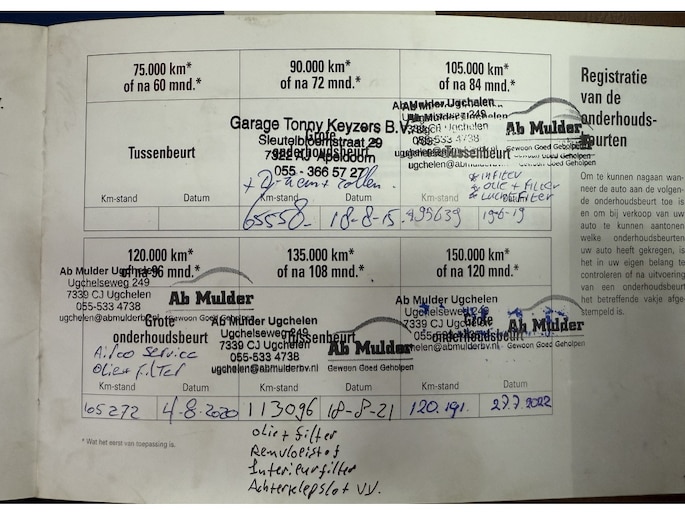 75.000 km*
of na 60 mnd.*
Tussenbeurt
Km-stand Datum
90.000 km*
of na 72 mnd.*
Garage Tonny Keyzers B.V.
Sleutelbloemstraat 29
7322 AJ Apeldoorn
055 - 366 57 27
Grote
onderhoudsbeurt
Km-stand Datum
65558 18-8-15
105.000 km*
of na 84 mnd.*
Ab Mulder Ugchelen
Ab Mulder
Gewoon Goed Geholpen
Tussenbeurt
INFILTER
OLIE + FILTER
LUCHTFILTER
Km-stand Datum
95639 19-6-19
120.000 km*
of na 96 mnd.*
Ab Mulder Ugchelen
Ugchelseweg 249
7339 CJ Ugchelen
055-533 4738
ugchelen@abmulderbv.nl
Ab Mulder
Gewoon Goed Geholpen
Grote
onderhoudsbeurt
Airco Service
Olie + filter
Km-stand Datum
105272 4-8-2020
135.000 km*
of na 108 mnd.*
Ab Mulder Ugchelen
Ugchelseweg 249
7339 CJ Ugchelen
055-533 4738
ugchelen@abmulderbv.nl
Ab Mulder
Gewoon Goed Geholpen
Tussenbeurt
Km-stand Datum
113096 18-8-21
olie + filter
Remvloeistof
Interieurfilter
Achterklepslot VV.
150.000 km*
of na 120 mnd.*
Ab Mulder Ugchelen
Ugchelseweg 249
7339 CJ Ugchelen
Ab Mulder
Gewoon Goed Geholpen
Grote
onderhoudsbeurt
Km-stand Datum
120.191 27.7.2022
* Wat het eerst van toepassing is.
Registratie
van de
onderhouds-
beurten
Om te kunnen nagaan wan-
neer de auto aan de volgen-
de onderhoudsbeurt toe is
en om bij verkoop van uw
auto te kunnen aantonen
welke onderhoudsbeurten
uw auto heeft gekregen, is
het in uw eigen belang te
controleren of na uitvoering
van een onderhoudsbeurt
het betreffende vakje afge-
stempeld is.